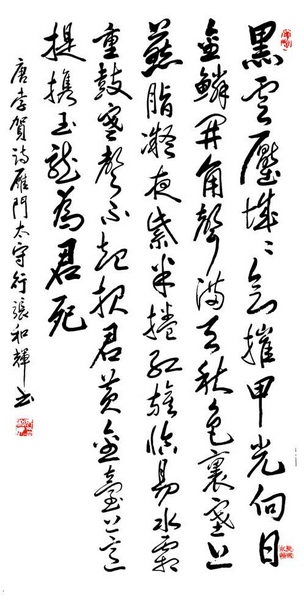 黑雲壓城〻欲摧甲光向日
金鱗開角聲滿天秋色裏塞上
燕脂凝夜紫半捲紅旗臨易水霜
重鼓寒聲不起報君黃金臺上意
提攜玉龍為君死
唐李賀詩雁門太守行張和輝書